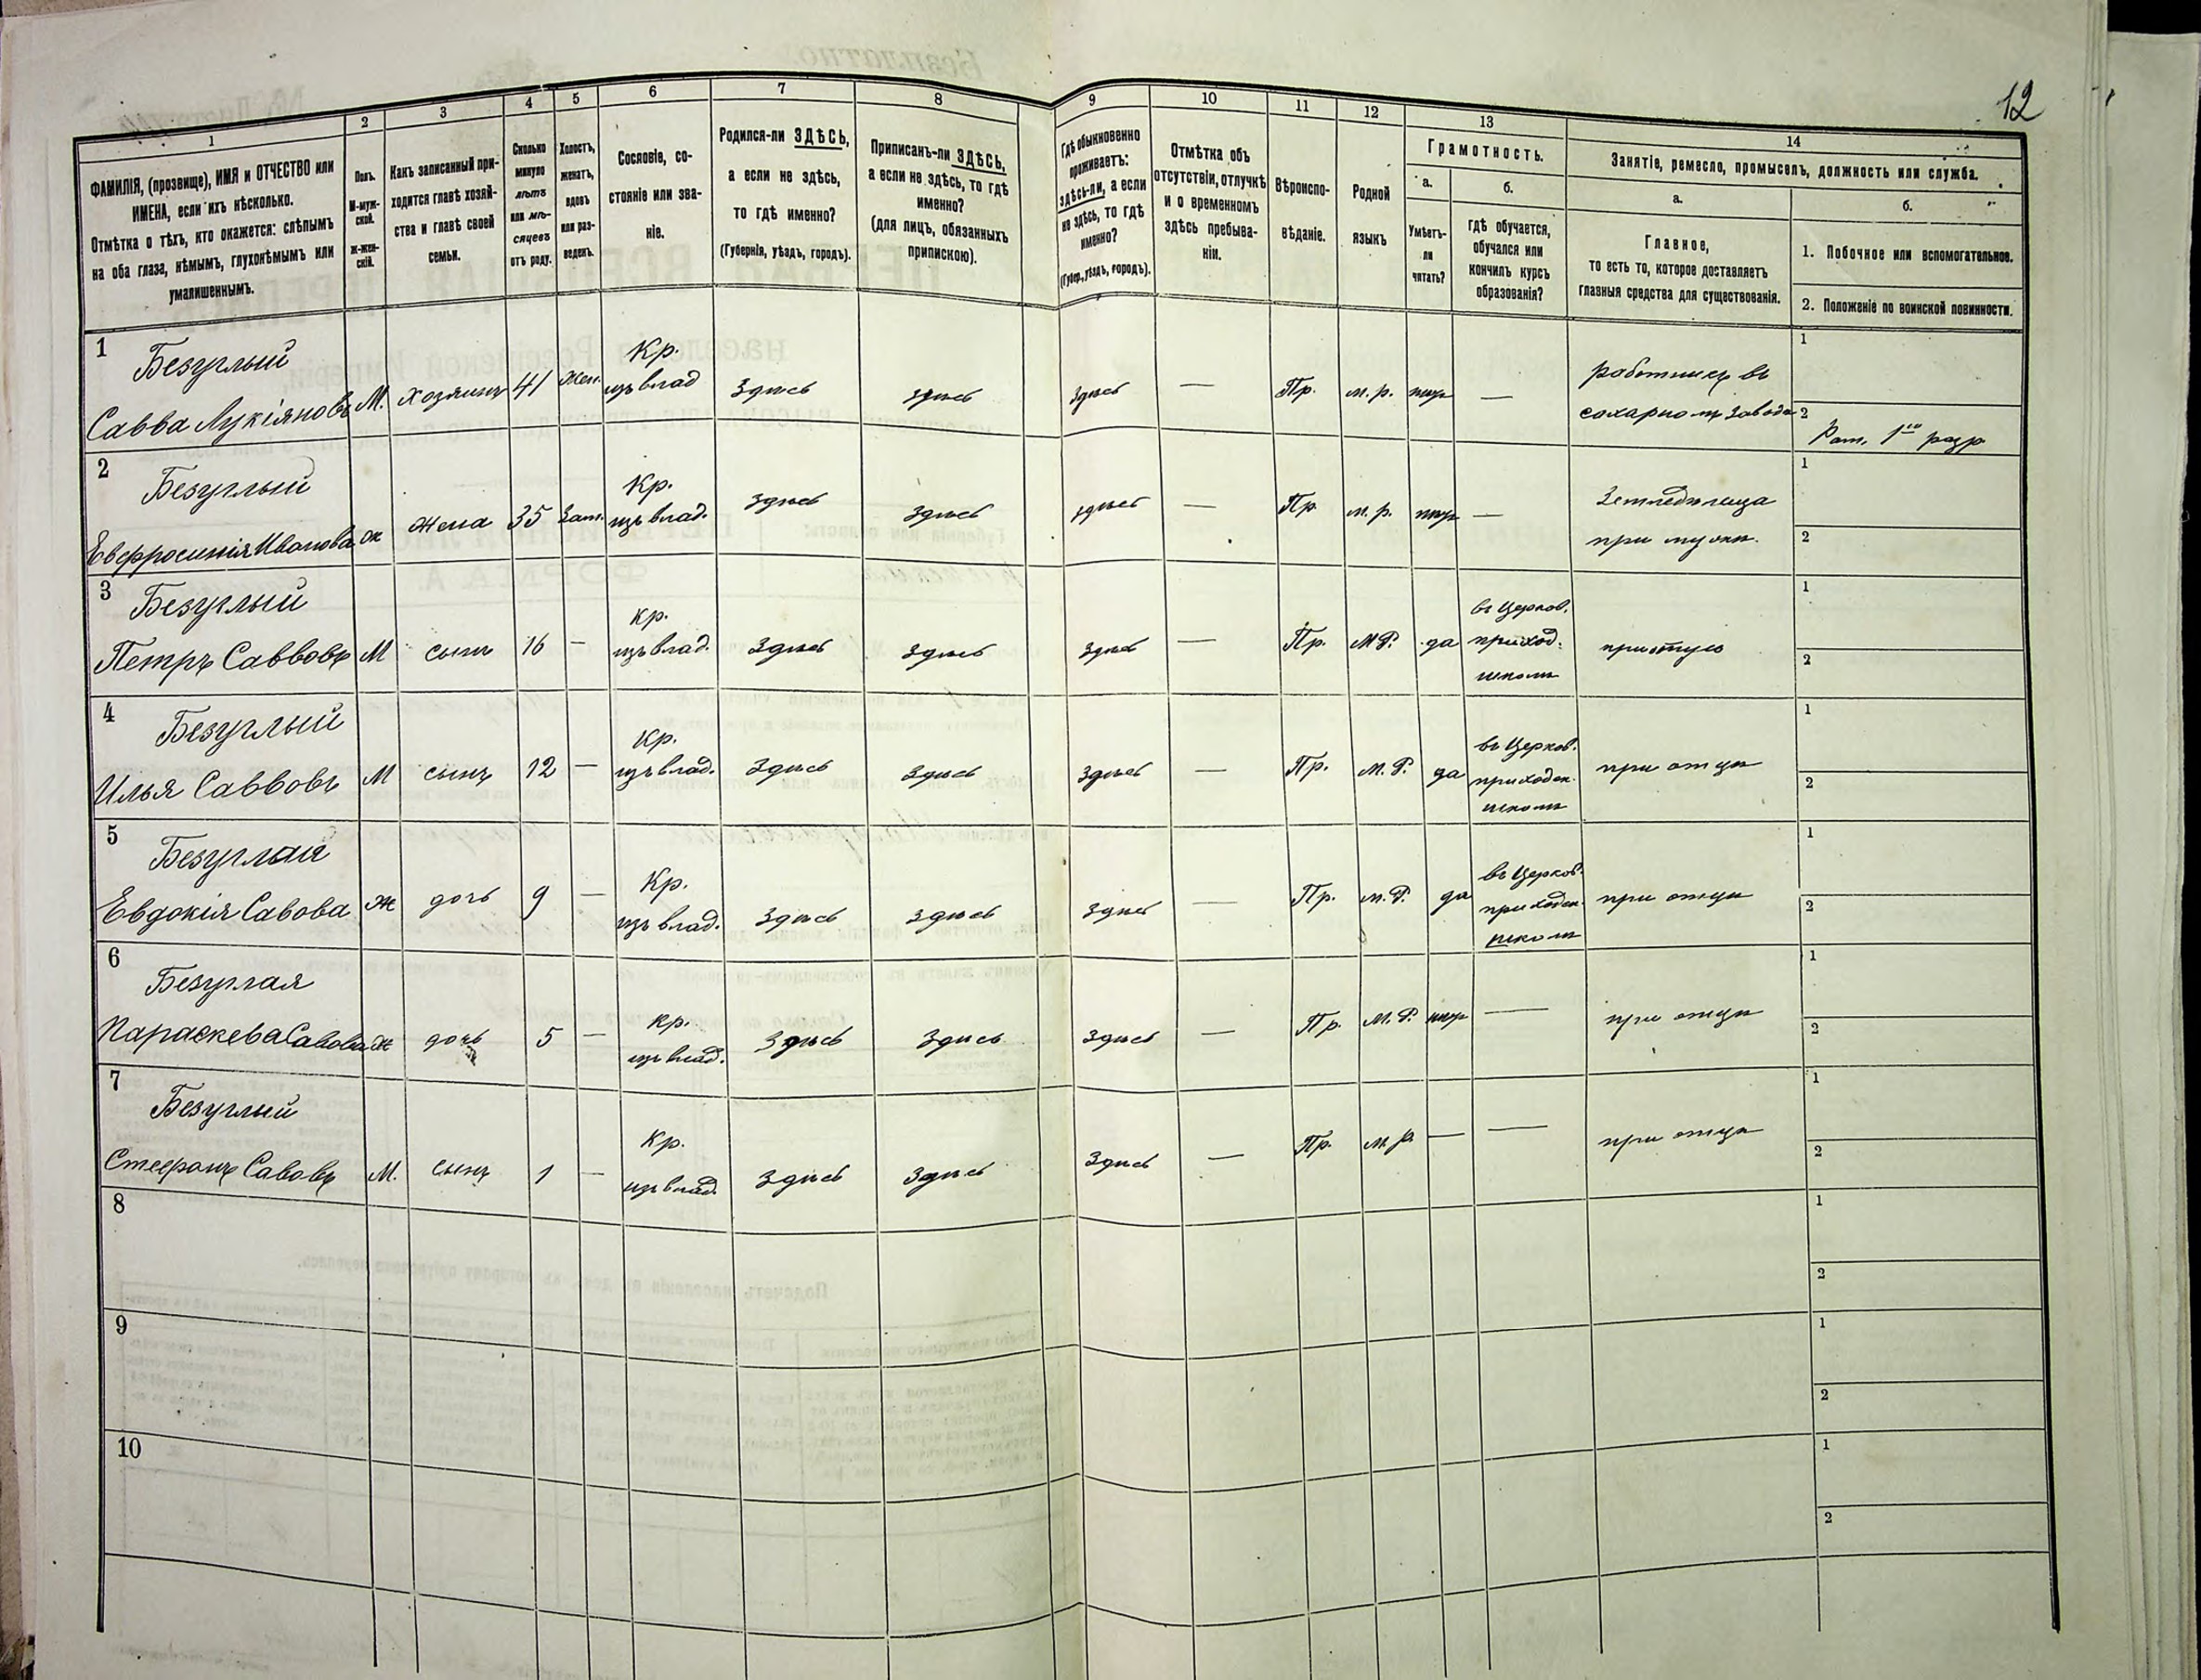 12
1 2 3 4 5 6 7 8 9 10 11 12 13 14
ФАМИЛІЯ, (прозвище), ИМЯ и ОТЧЕСТВО или
ИМЕНА, если ихъ нѣсколько.
Отмѣтка о тѣхъ, кто окажется: слѣпымъ
на оба глаза, нѣмымъ, глухонѣмымъ или
умалишеннымъ.
Полъ.
М-муж-
ской.
Ж-жен-
скій.
Какъ записанный при-
ходится главѣ хозяй-
ства и главѣ своей
семьи.
Сколько
минуло
лѣтъ
или мѣ-
сяцевъ
отъ роду.
Холостъ,
женатъ,
вдовъ
или раз-
веденъ.
Сословіе, со-
стояніе или зва-
ніе.
Родился-ли ЗДѢСЬ,
а если не здѣсь,
то гдѣ именно?
(Губернія, уѣздъ, городъ).
Приписанъ-ли ЗДѢСЬ,
а если не здѣсь, то гдѣ
именно?
(для лицъ, обязанныхъ
припискою).
Гдѣ обыкновенно
проживаетъ:
здѣсь-ли, а если
не здѣсь, то гдѣ
именно?
(Губер., уѣздъ, городъ).
Отмѣтка объ
отсутствіи, отлучкѣ
и о временномъ
здѣсь пребыва-
ніи.
Вѣроиспо-
вѣданіе.
Родной
языкъ
Грамотность.
а.
Умѣетъ-
ли
читать?
б.
Гдѣ обучается,
обучался или
кончилъ курсъ
образованія?
Занятіе, ремесло, промыселъ, должность или служба.
а.
Главное,
то есть то, которое доставляетъ
главныя средства для существованія.
б.
1. Побочное или вспомогательное.
2. Положеніе по воинской повинности.
1 Безуглый Кр. работникъ въ 1
Савва Лукіяновъ М. хозяинъ 41 Жен. изъ влад здѣсь здѣсь здѣсь — Пр. м. р. нѣтъ — сахарномъ заводѣ 2 Рат. 1го разр
2 Безуглый Кр. Земледѣлица 1
Евфросинія Иванова ж жена 35 Зам. изъ влад. здѣсь здѣсь здѣсь — Пр. м. р. нѣтъ — при мужѣ. 2
3 Безуглый Кр. въ Церков. 1
Петръ Саввовъ М сынъ 16 — изъ влад. здѣсь здѣсь здѣсь — Пр. М.Р. да приход. при отцѣ 2
школѣ
4 Безуглый Кр. въ Церков. 1
Илья Саввовъ М сынъ 12 — изъ влад. здѣсь здѣсь здѣсь — Пр. М.Р. да приходск. при отцѣ 2
школѣ
5 Безуглая Кр. въ Церков. 1
Евдокія Савова Ж дочь 9 — изъ влад. здѣсь здѣсь здѣсь — Пр. м.Р. да приходск. при отцѣ 2
школѣ
6 Безуглая Кр. 1
Параскева Савова Ж дочь 5 — изъ влад. здѣсь здѣсь здѣсь — Пр. М.Р. нѣтъ — при отцѣ 2
7 Безуглый Кр. 1
Стефанъ Савовъ М. сынъ 1 — изъ влад. здѣсь здѣсь здѣсь — Пр. м.р — — при отцѣ 2
8 1
2
9 1
2
10 1
2